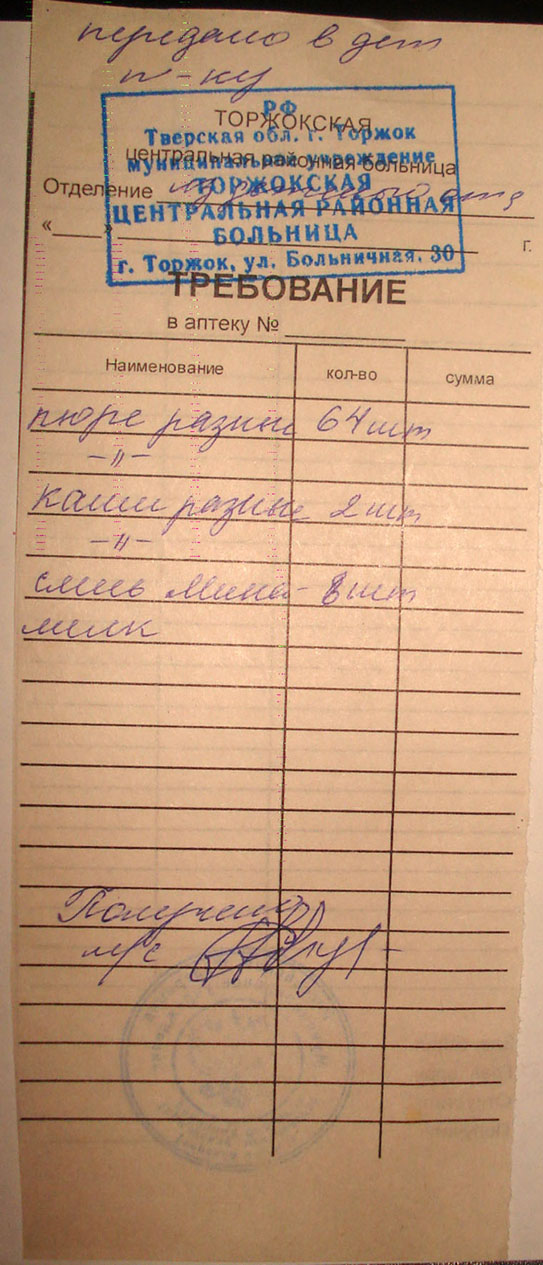 передано в дет
п-ку
ТОРЖОКСКАЯ
центральная районная больница
РФ
Тверская обл. г. Торжок
муниципальное учреждение
ТОРЖОКСКАЯ
ЦЕНТРАЛЬНАЯ РАЙОННАЯ
БОЛЬНИЦА
г. Торжок, ул. Больничная, 30
Отделение
« » г.
ТРЕБОВАНИЕ
в аптеку №
Наименование кол-во сумма
пюре разные 64 шт
-"-
каши разные 2 шт
-"-
смесь 8 шт
милк
Получено
м/с